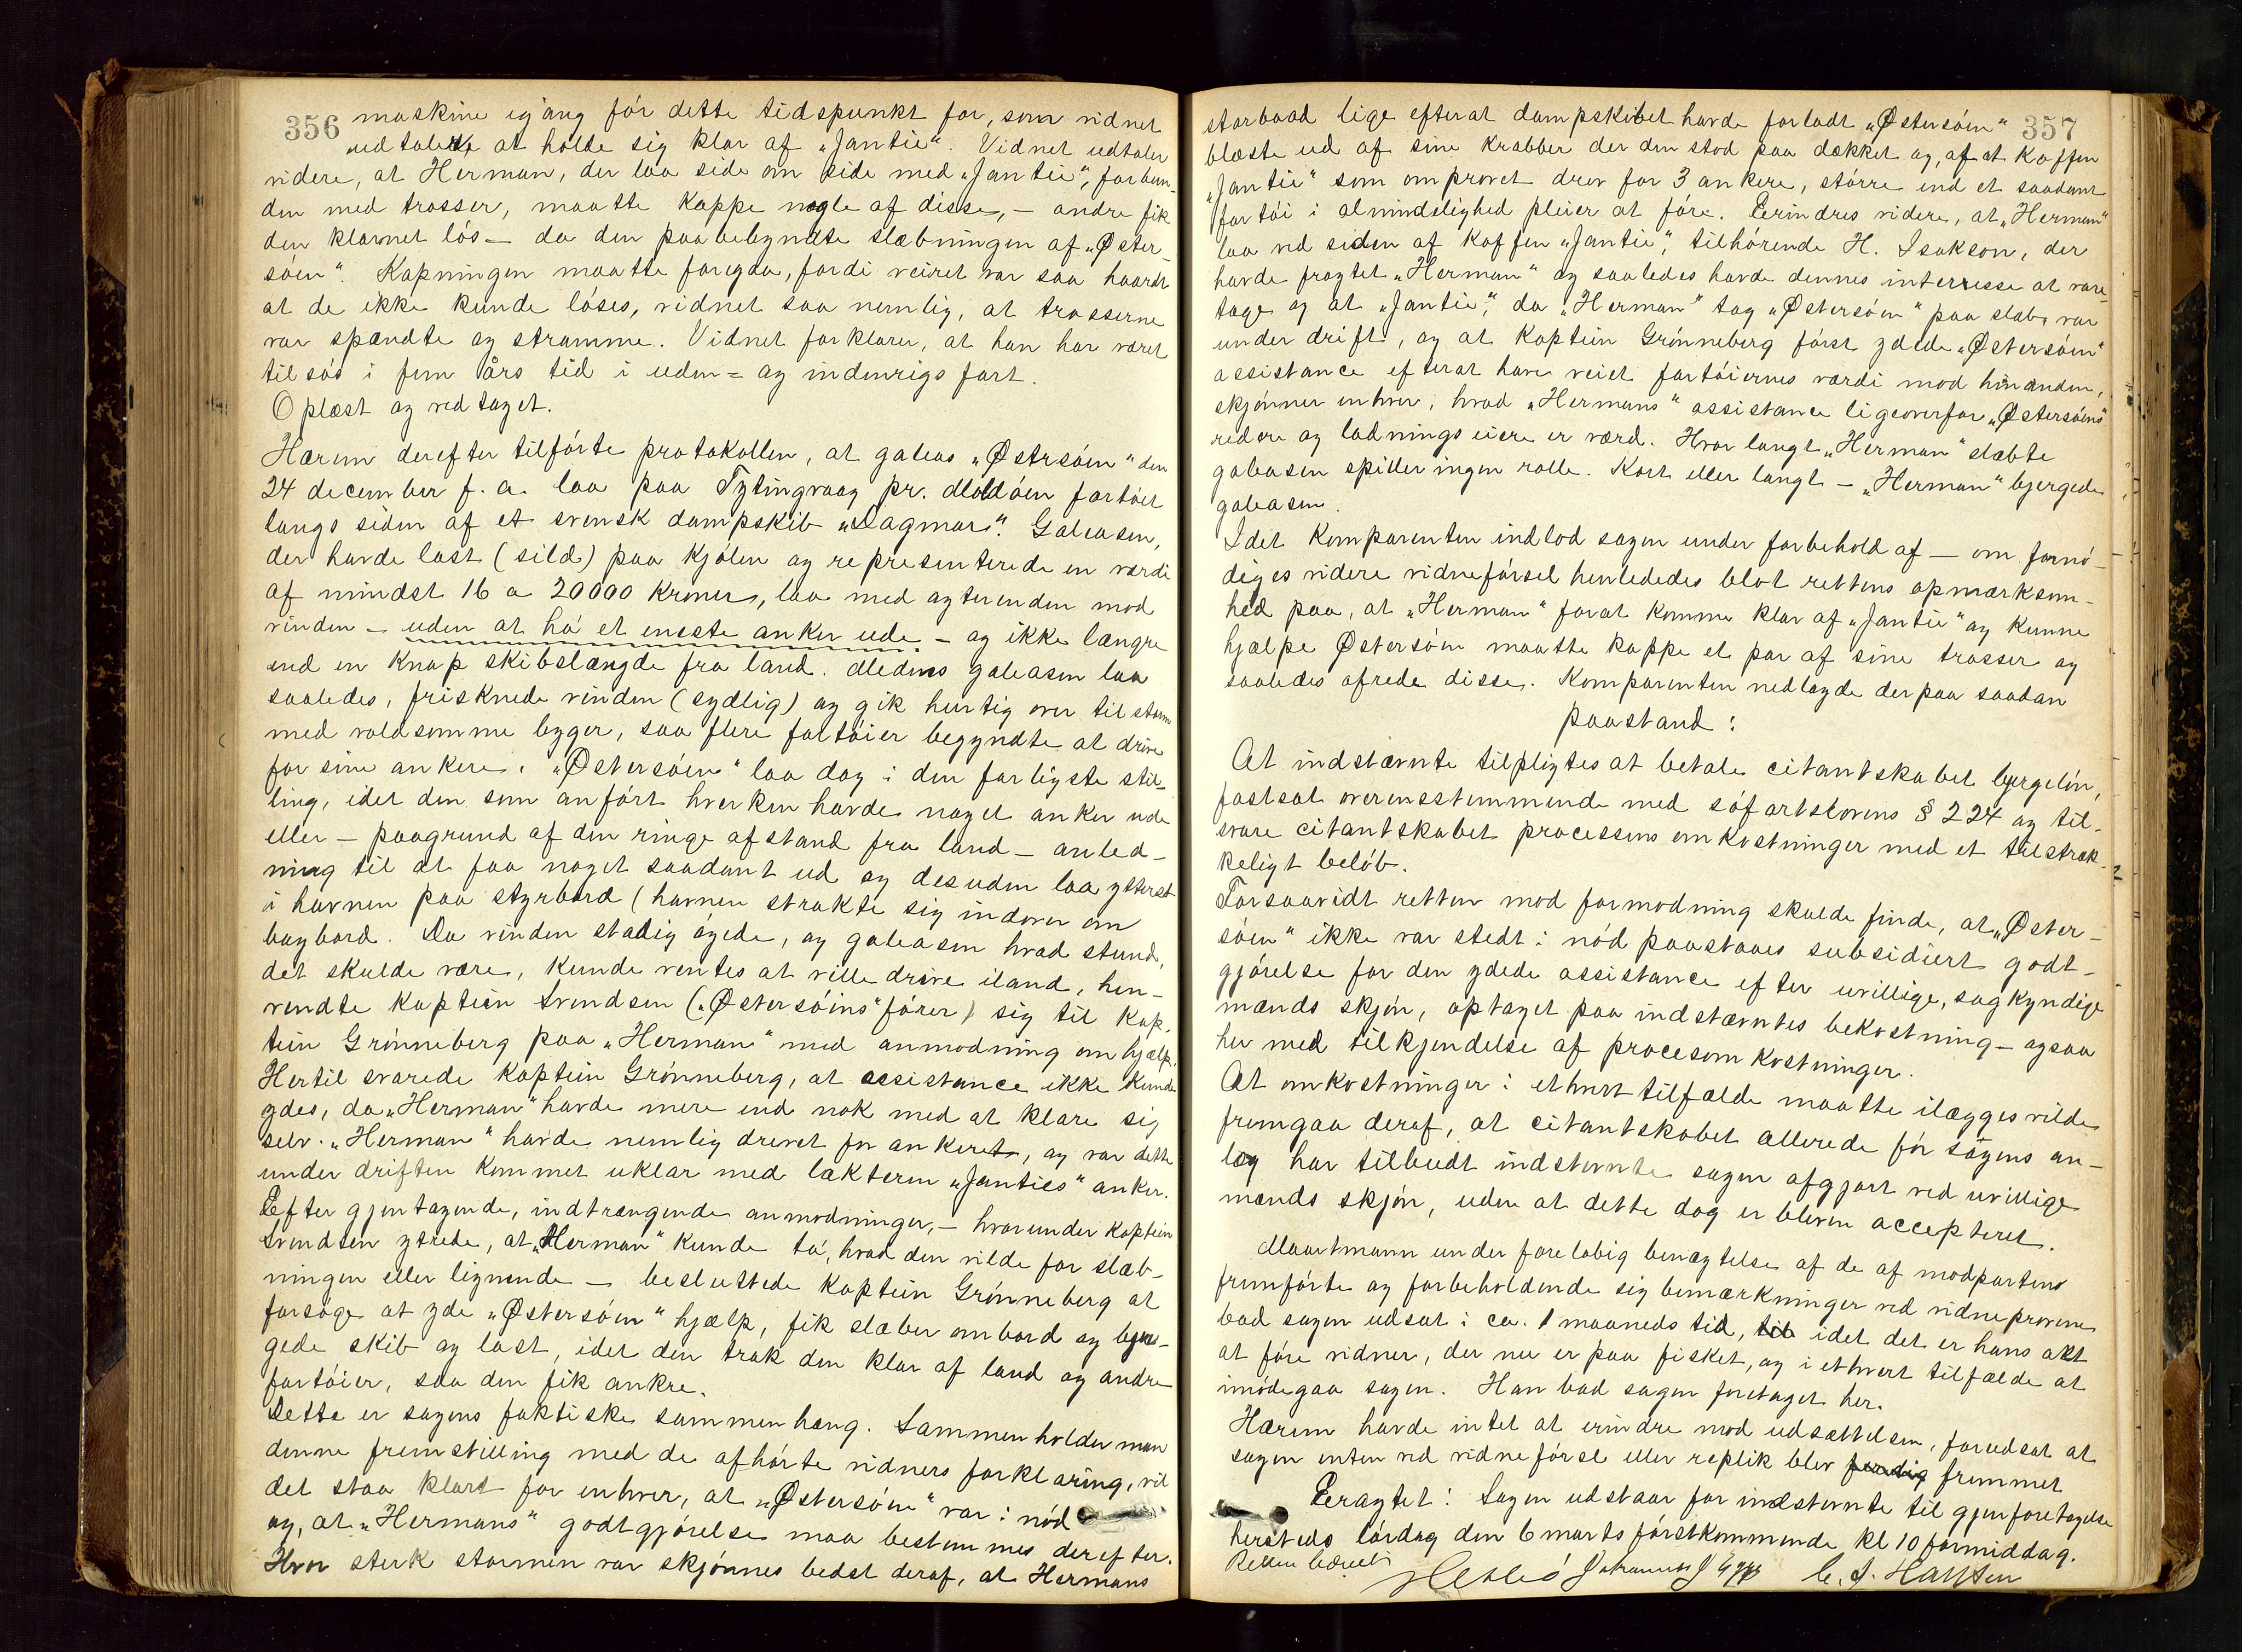 356
maskine igang før dette tidspunkt for, som vidnet
udtaler, at holde sig klar af „Jantie“. Vidnet udtaler
videre, at Herman, der laa side om side med „Jantie“, forbun-
den med trosser, maatte kappe nogle af disse, – andre fik
den klarnet løs – da den paabebegyndte slæbningen af „Øster-
søen“. Kapningen maatte foregaa, fordi veiret var saa haardt
at de ikke kunde løses, vidnet saa nemlig, at trosserne
var spændte og stramme. Vidnet forklarer, at han har været
tilsøs i fem års tid i uden= og indenrigs fart.
Oplæst og vedtaget.
Hærem derefter tilførte protokollen, at galeas „Østrsøen“ den
24 december f. a. laa paa Tytingvaag pr. Moldøen fortøiet
langs siden af et svensk dampskib „Dagmar“. Galeasen,
der havde last (sild) paa kjølen og representerede en værdi
af mindst 16 a 20000 kroner, laa med agterenden mod
vinden – uden at ha et eneste anker ude – og ikke længre
end en knap skibslængde fra land. Medens galeasen laa
saaledes, frisknede vinden (sydlig) og gik hurtig over til storm
med voldsomme byger, saa flere fartøier begyndte at drive
for sine ankere. „Østersøen“ laa dog i den farligste stil-
ling, idet den som anført hverken havde noget anker ude
eller – paagrund af den ringe afstand fra land – anled-
ning til at faa noget saadant ud og desuden laa ytterst
i havnen paa styrbord (havnen strakte sig indover om
bagbord. Da vinden stadig øgede, og galeasen hvad stund,
det skulde være, kunde ventes at ville drive iland, hen-
vendte kaptein Svendsen („Østersøins“ fører) sig til kap-
tein Grønneberg paa „Herman“ med anmodning om hjælp.
Hertil svarede kaptein Grønneberg, at assistance ikke kunde
ydes, da „Herman“ havde mere end nok med at klare sig
selv. „Herman“ havde nemlig drevet for ankeret, og var dette
under driften kommet uklar med lækteren „Janties“ anker.
Efter gjentagende, indtrængende anmodninger, – hvorunder kaptein
Svendsen ytrede, at „Herman“ kunde ta, hvad den vilde for slæb-
ningen eller lignende – besluttede kaptein Grønneberg at
forsøge at yde „Østersøen“ hjælp, fik slæber ombord og bjer-
gede skib og last, idet den trak den klar af land og andre
fartøier, saa den fik ankre.
Dette er sagens faktiske sammenhæng. Sammenholder man
denne fremstilling med de afhørte vidners forklaring, vil
det staa klart for enhver, at „Østersøen“ var i nød
og, at „Hermans“ godtgjørelse maa bestemmes derefter.
Hvor sterk stormen var skjønnes bedst deraf, at Hermans
357
storbaad lige efterat dampskibet havde forladt „Østersøen“
blæste ud af sine krabber der den stod paa dækket og, af at Koffen
„Jantie“ som omprovet drev for 3 ankere, større end et saadant
fartøi i almindelighed pleier at føre. Erindres videre, at „Herman“
laa ved siden af Koffen „Jantie“, tilhørende H. Isakson, der
havde fragtet „Herman“ og saaledes havde dennes interresse at vare-
tage og at „Jantie“, da „Herman“ tog „Østersøen“ paa slæb, var
under drift, og at kaptein Grønneberg først ydede „Østersøen“
assistance efterat have veiet fartøiernes værdi mod hinanden,
skjønner enhver, hvad „Hermans“ assistance ligeoverfor „Østersøens“
redere og ladningseiere er værd. Hvor langt „Herman“ slæbte
galeasen spiller ingen rolle. Kort eller langt – „Herman“ bjergede
galeasen.
Idet Komparenten indlod sagen under forbehold af – om fornø-
diges videre vidneførsel henlededes blot rettens opmærksom-
hed paa, at „Herman“ forat komme klar af „Jantie“ og kunne
hjælpe Østersøen maatte kappe et par af sine trosser og
saaledes ofrede disse. Komparenten nedlagde derpaa saadan
paastand:
At indstævnte tilpligtes at betale citantskabet bjergeløn,
fastsat overensstemmende med søfartslovens § 224 og til-
svare citantskabet processens omkostninger med et tilstræk-
keligt beløb.
Forsaavidt retten mod formodning skulde finde, at „Øster-
søen“ ikke var stedt i nød paastaaes subsidiert godt-
gjørelse for den ydede assistance efter uvillige, sagkyndige
mænds skjøn, optaget paa indstævntes bekostning – ogsaa
her med tilkjendelse af procesomkostninger.
At omkostninger i ethvert tilfælde maatte ilægges vilde
fremgaa deraf, at citantskabet allerede før sagens an-
læg har tilbudt indstevnte sagen afgjort ved uvillige
mænds skjøn, uden at dette dog er bleven accepteret.
Maartmann under foreløbig benægtelse af de af modparten
fremførte og forbeholdende sig bemærkninger ved vidneprovene
bad sagen udsat i ca. 1 maaneds tid, idet det er hans akt
at føre vidner, der nu er paa fisket, og i ethvert tilfælde at
imødegaa sagen. Han bad sagen foretaget her.
Hærem havde intet at erindre mod udsættelsen, forudsat at
sagen enten ved vidneførsel eller replik blev fremmet
Eragtet: Sagen udstaar for indstevnte til gjenforetagelse
hersteds lørdag den 6 marts førstkommende kl 10 formiddag.
Retten hævet